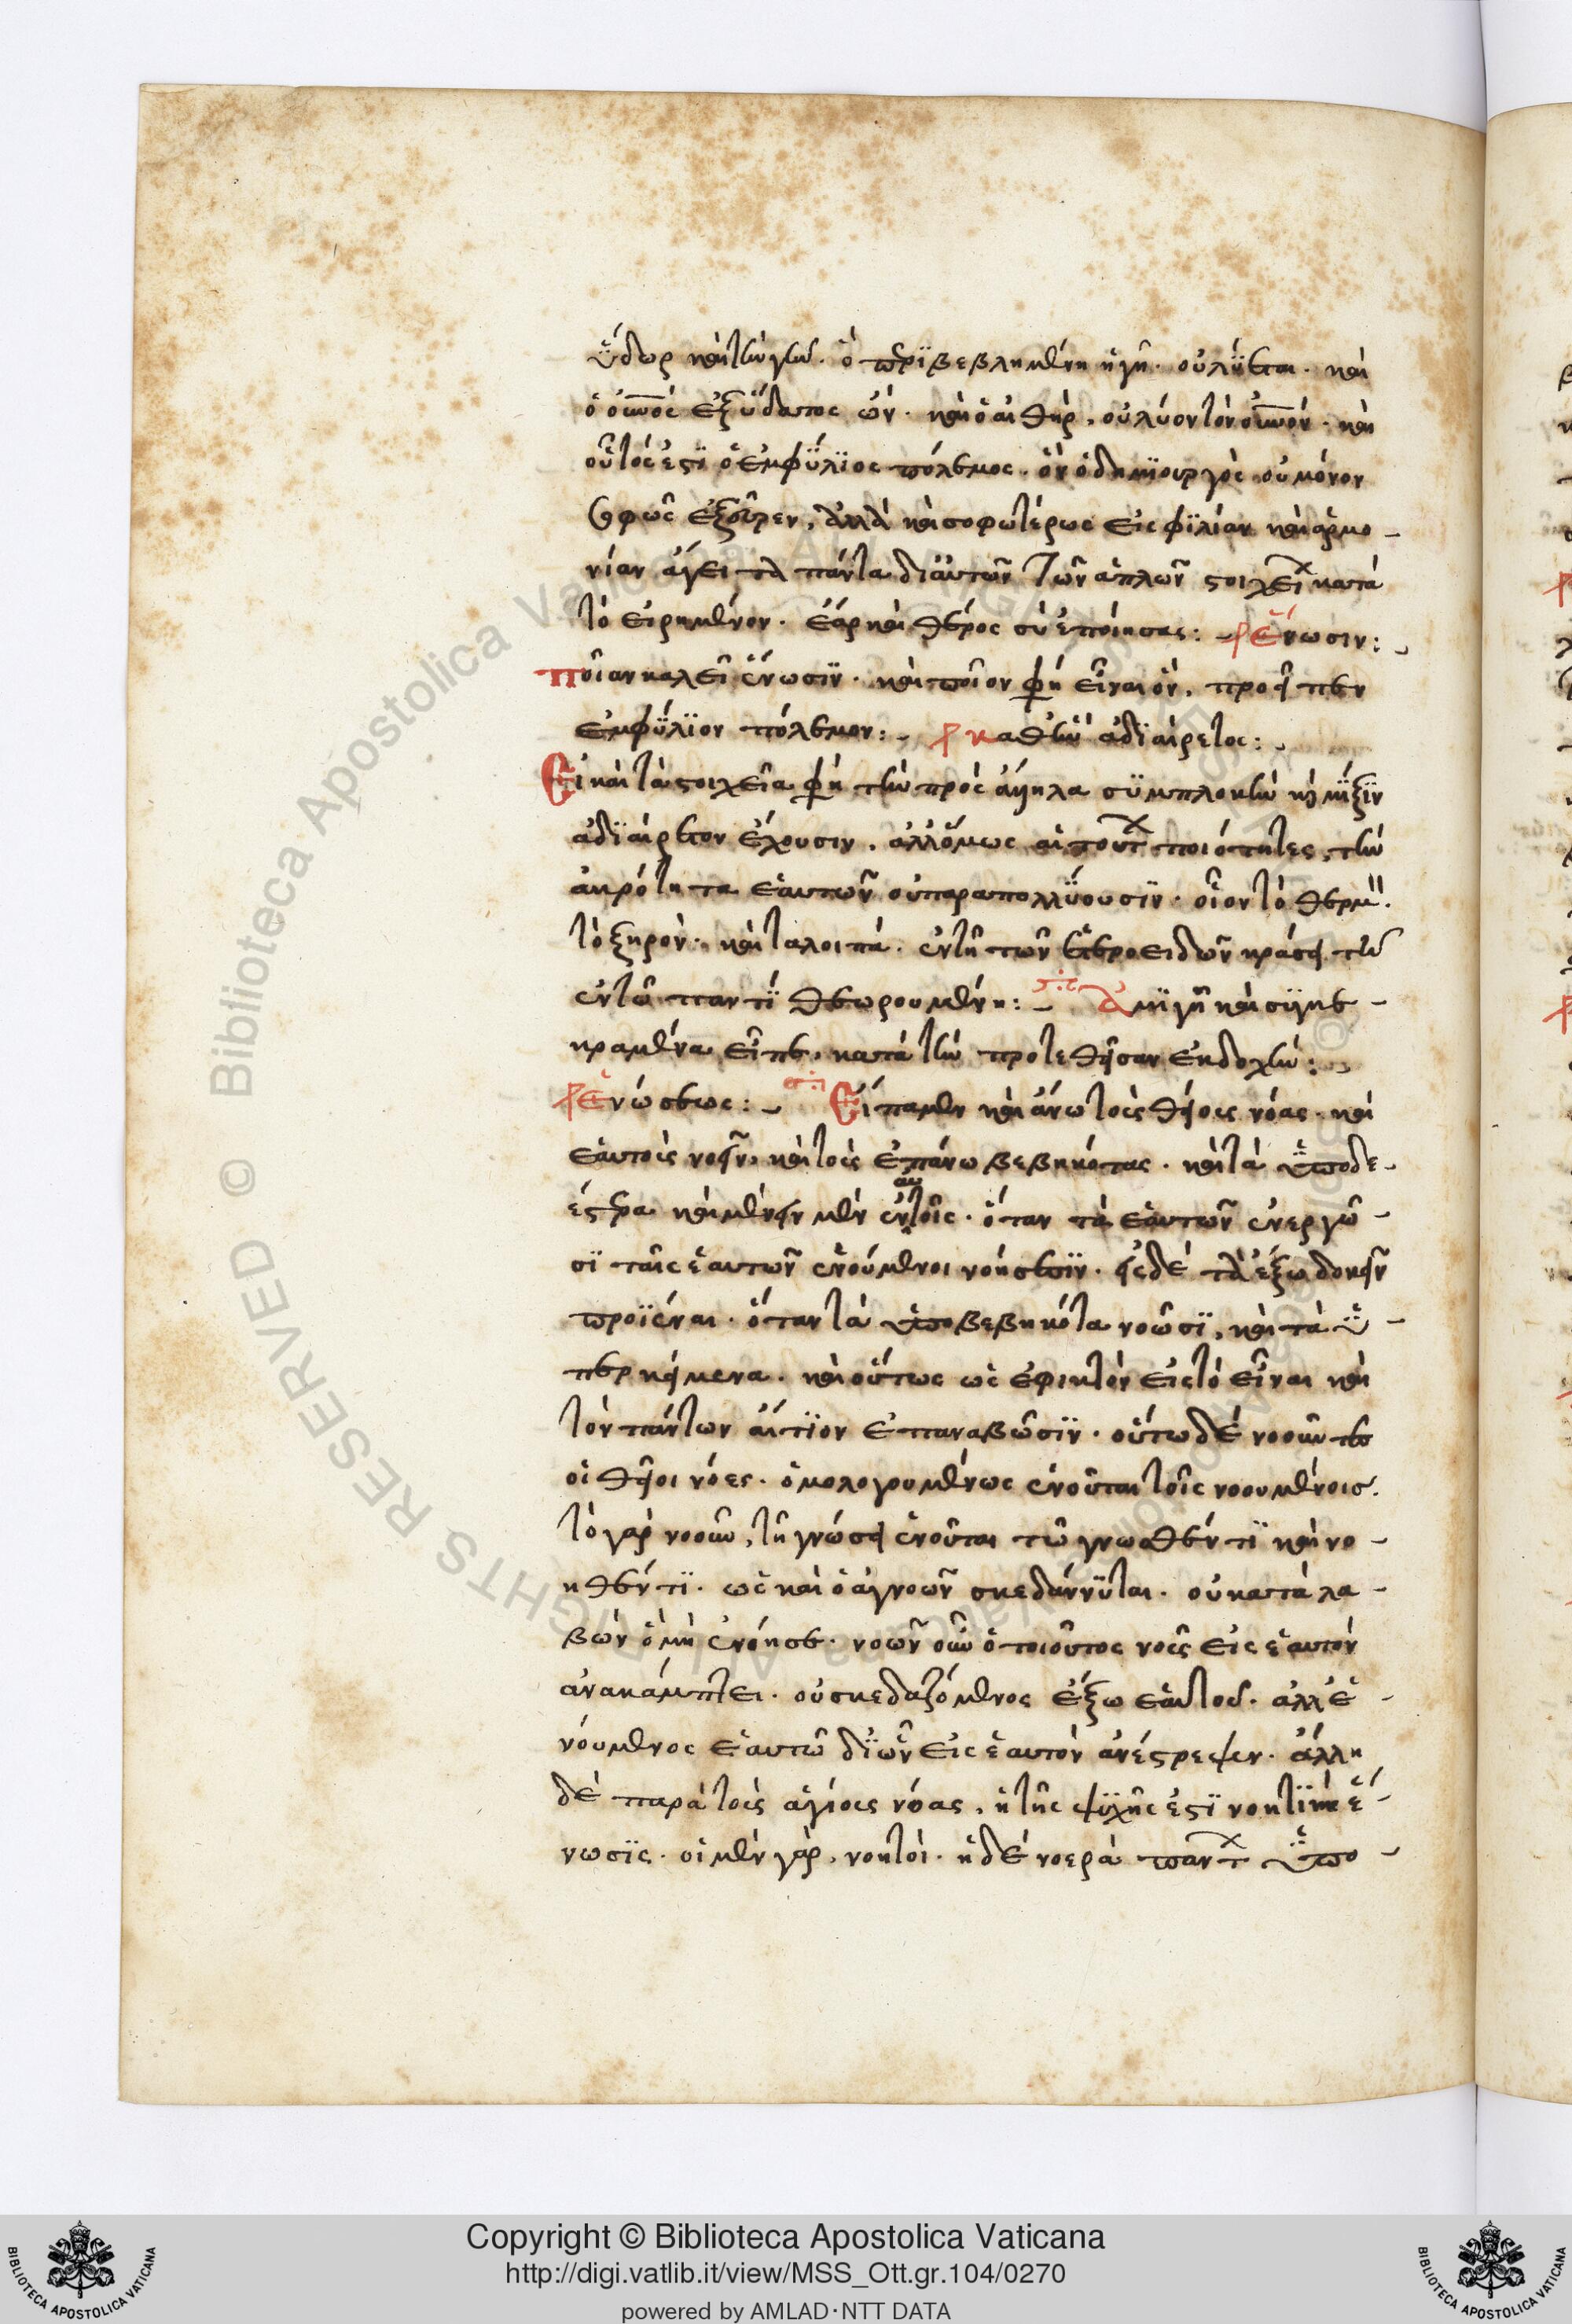 ὕδωρ καὶ τὴν γῆν. ὁ περιβεβλημένη ἡ γῆ. οὐ λύεται. καὶ
ὁ οὐνος ἐξ ὕδατος ὤν. καὶ ὁ αἰθὴρ, οὐ λύον τὸν οὐνον. καὶ
οὗτός ἐστι ὁ ἐμφύλιος πόλεμος. ὃν ὁ δημιουργὸς οὐ μόνον
σοφῶς ἐξεῦρεν, ἀλλὰ καὶ σοφωτέρως εἰς φιλίαν καὶ ἁρμο-
νίαν ἄγει τὰ πάντα δι' αὐτῶν τῶν ἁπλῶν στοιχεί κατὰ
τὸ εἰρημένον. ἔαρ καὶ θέρος σὺ ἐποίησας: Ἕνωσιν:
Ποίαν καλεῖ ἕνωσιν. καὶ ποῖον φη εἶναι ὃν, προεῖπεν
ἐμφύλιον πόλεμον: καθ' ἣν ἀδιαίρετος:
Εἰ καὶ τὰ στοιχεῖα φη τὴν πρὸς ἄλληλα συμπλοκὴν καὶ μίξιν
ἀδιαίρετον ἔχουσιν. ἀλλ' ὅμως αἱ τούτ ποιότητες, τὴν
ἀκρότητα ἑαυτῶν οὐ παραπολλύουσιν. οἷον τὸ θερμ.
τὸ ξηρόν. καὶ τὰ λοιπά. ἐν τῇ τῶν ἑτεροειδῶν κράσει τῇ
ἐν τῶ παντὶ θεωρουμένη: Ἀμιγῆ καὶ συγκε-
κραμένα εἶπε. κατὰ τὴν προτεθεῖσαν ἐκδοχήν:
Ἑνώσεως: Εἴπαμεν καὶ ἄνω τοὺς θείους νόας. καὶ
ἑαυτοὺς νοεῖν, καὶ τοὺς ἐπάνω βεβηκότας. καὶ τὰ ὑποδε-
έστερα καὶ μένειν μὲν ἐν αυτοῖς. ὅταν τὰ ἑαυτῶν ἐνεργῶ-
σι ταῖς ἑαυτῶν ἑνούμενοι νοήσεσιν. εἰς δὲ τὰ ἔξω δοκεῖν
προϊέναι. ὅταν τὰ ὑποβεβηκότα νοῶσι, καὶ τὰ ὑ-
περκείμενα. καὶ οὕτως ὡς ἐφικτὸν εἰς τὸ εἶναι καὶ
τὸν πάντων αἴτιον ἐπαναβῶσιν. οὕτω δὲ νοοῦντες
οἱ θεῖοι νόες. ὁμολογουμένως ἑνοῦται τοῖς νοουμένοις.
τὸ γὰρ νοοῦν, τῇ γνώσει ἑνοῦται τῶ γνωσθέντι καὶ νο-
ηθέντι. ὡς καὶ ὁ ἀγνοῶν σκεδάννυται. οὐ καταλα-
βὼν ὃ μὴ ἐνόησε. νοῶν οὖν ὁ τοιοῦτος νοῦς εἰς ἑαυτὸν
ἀνακάμπτει. οὐ σκεδαζόμενος ἔξω ἑαυτοῦ. ἀλλ' ἑ-
νούμενος ἑαυτῶ δι' ὧν εἰς ἑαυτὸν ἀνέστρεψεν. ἄλλη
δὲ παρὰ τοὺς ἁγίους νόας, ἡ τῆς ψυχῆς ἐστι νοητικὴ ἕ-
νωσις. οἱ μὲν γὰρ, νοητοί. ἡ δὲ νοερὰ παντ ὑπο-
Copyright © Biblioteca Apostolica Vaticana
http://digi.vatlib.it/view/MSS_Ott.gr.104/0270
powered by AMLAD·NTT DATA